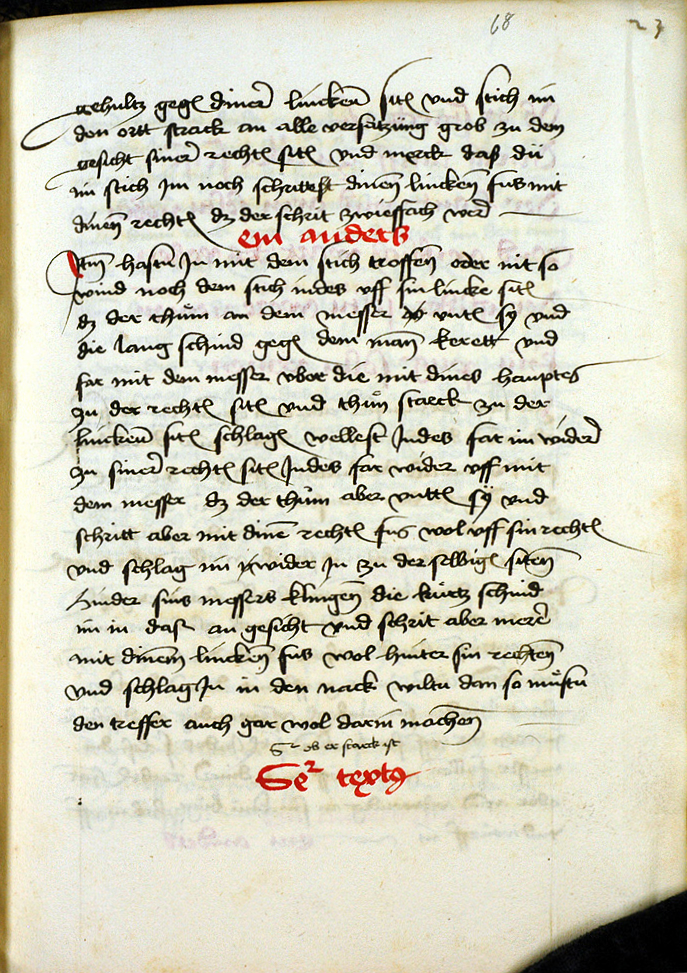 68
23
gehultz gege diner lincken site vnd stich im
den ortt strack an alle versatzüng grob zu dem
gesicht siner rechte site vnd merck daß dü
im stich Im noch schrittest dinen lincken fus mit
dinen rechte dz der schrit zwieffach werd
ein anders
Itm hastu In mit dem stich troffen oder nit so
wind noch dem stich indes vff sin lincke site
dz der thům an dem messer vnte sy vnd
die lang schnid gege dem man kerett vnd
far mit dem messer vber die mit dines hauptes
zu der rechte site vnd thůn starck zu der
lincken site schlage wellest Indes far im wider
zu siner rechte site Indes far wider vff mit
dem messer dz der thům aber vntte sÿ vnd
schritt aber mit dine rechte fus wol vff sin recht
vnd schlag im wider In zu der selbige siten
hinder sins messers klingen die kůrtz schnid
im in daß an gesicht vnd schrit aber mere
mit dinem lincken fus wol hinter sin rechten
vnd schlag In in den nack wiltu dan so můstu
den treffer auch gar wol darin machen
ob er starck ist
Se2 text9